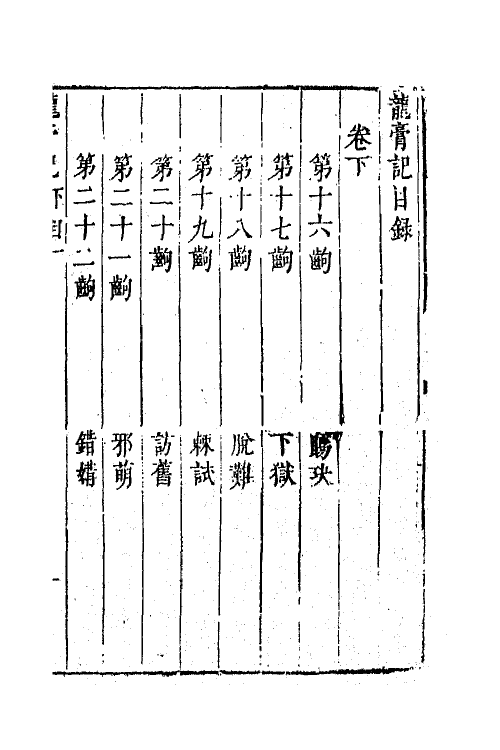 龍膏記目録
卷下
第十六齣 賜玦
第十七齣 下獄
第十八齣 脫難
第十九齣 棘試
第二十齣 訪舊
第二十一齣 邪萌
第二十二齣 錯媾